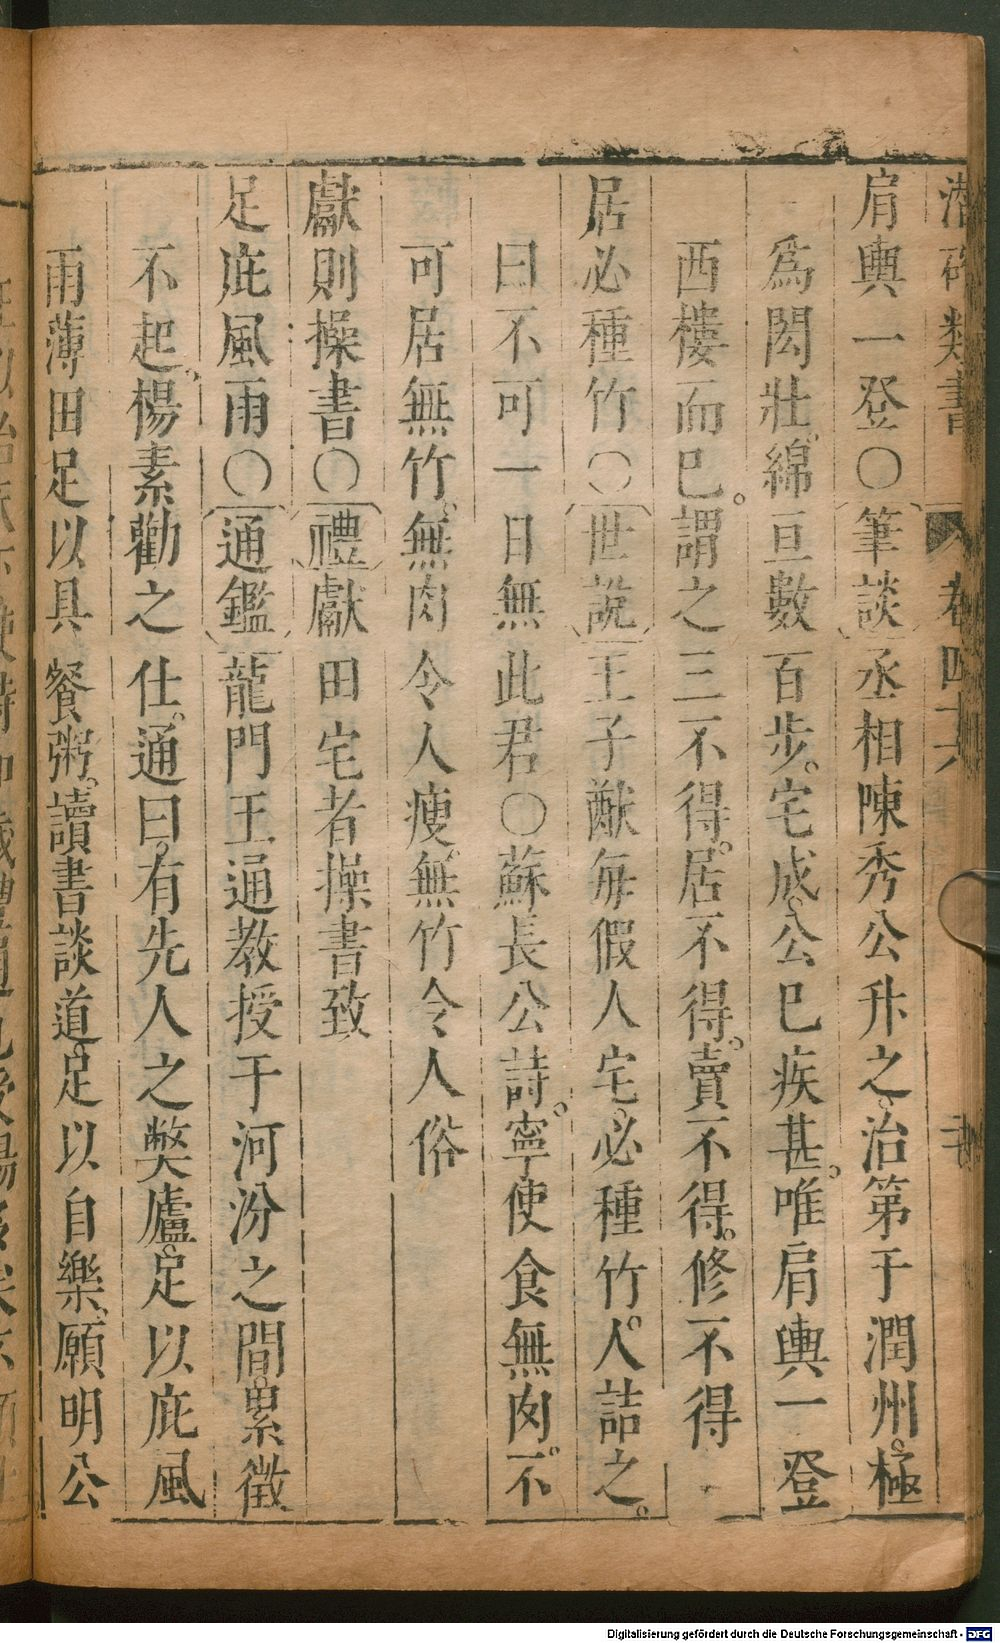 潛確類書 卷四十六
肩輿一登〇筆談丞相陳秀公升之治第于潤州。極
爲閎壯。綿亘數百步。宅成。公已疾甚。唯肩輿一登
西樓而已。謂之三不得。居不得。賣不得。修不得
居必種竹〇世說王子猷每假人宅。必種竹。人詰之。
曰不可一日無此君〇蘇長公詩。寧使食無肉。不
可居無竹。無肉令人瘦。無竹令人俗
獻則操書〇禮獻田宅者操書致
足庇風雨〇通鑑龍門王通教授于河汾之間。累徵
不起。楊素勸之仕。通曰。有先人之弊廬。足以庇風
雨薄田足以具餐粥。讀書談道。足以自樂。願明公
Digitalisierung gefördert durch die Deutsche Forschungsgemeinschaft - DFG